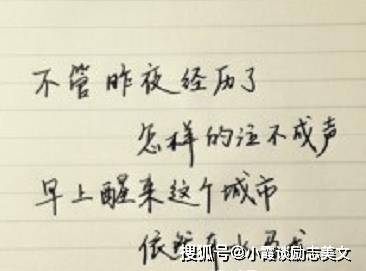 不管昨夜经历了
怎样的泣不成声
早上醒来这个城市
依然车水马龙
搜狐号@小霞谈励志美文